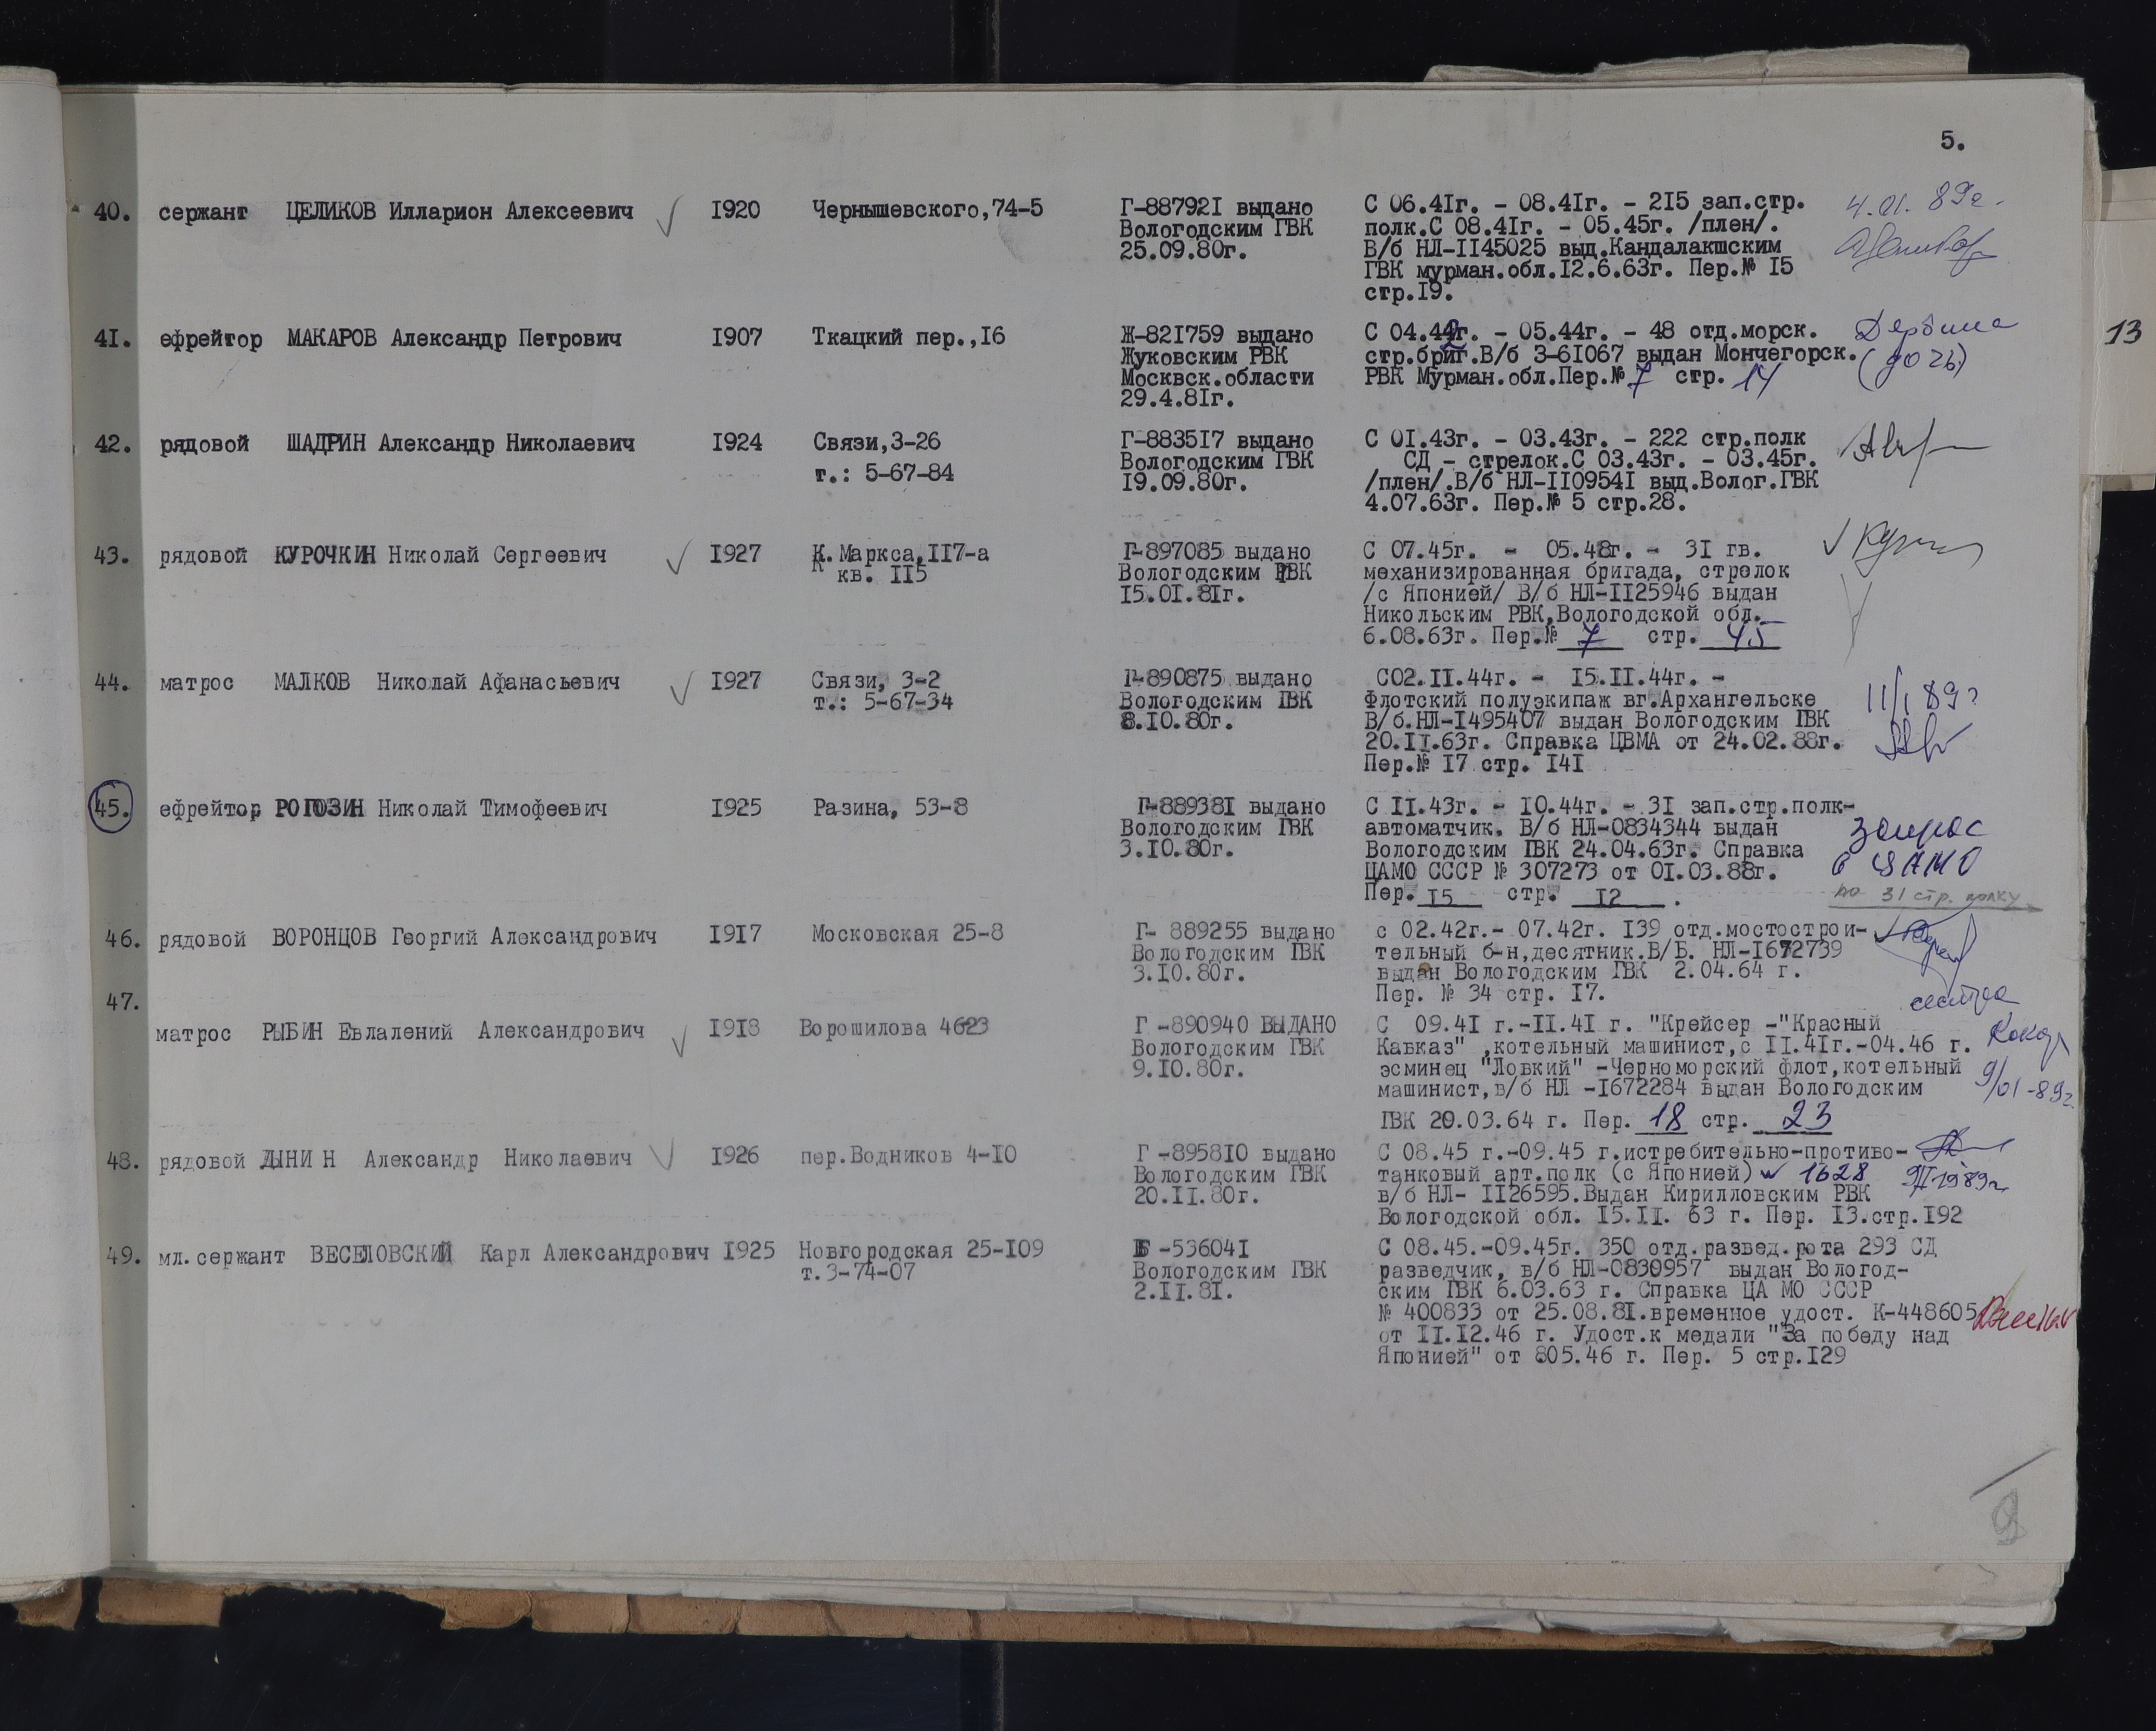 5.
13
40. сержант ЦЕЛИКОВ Илларион Алексеевич 1920 Чернышевского,74-5
Г-887921 выдано
Вологодским ГВК
25.09.80г.
С 06.41г. - 08.41г. - 215 зап.стр.
полк.С 08.41г. - 05.45г. /плен/.
В/б НЛ-1145025 выд.Кандалакшским
ГВК мурман.обл.12.6.63г. Пер.№ 15
стр.19.
4.01.89г.
41. ефрейтор МАКАРОВ Александр Петрович 1907 Ткацкий пер.,16
Ж-821759 выдано
Жуковским РВК
Москвск.области
29.4.81г.
С 04.42г. - 05.44г. - 48 отд.морск.
стр.бриг.В/б З-61067 выдан Мончегорск.
РВК Мурман.обл.Пер.№ 7 стр. 14
(дочь)
42. рядовой ШАДРИН Александр Николаевич 1924 Связи,3-26
т.: 5-67-84
Г-883517 выдано
Вологодским ГВК
19.09.80г.
С 01.43г. - 03.43г. - 222 стр.полк
СД - стрелок.С 03.43г. - 03.45г.
/плен/.В/б НЛ-1109541 выд.Волог.ГВК
4.07.63г. Пер.№ 5 стр.28.
43. рядовой КУРОЧКИН Николай Сергеевич 1927 К.Маркса,117-а
кв. 115
Г-897085 выдано
Вологодским ГВК
15.01.81г.
С 07.45г. - 05.48г. - 31 гв.
механизированная бригада, стрелок
/с Японией/ В/б НЛ-1125946 выдан
Никольским РВК,Вологодской обл.
6.08.63г. Пер.№ 7 стр. 45
44. матрос МАЛКОВ Николай Афанасьевич 1927 Связи, 3-2
т.: 5-67-34
Г-890875 выдано
Вологодским ГВК
8.10.80г.
С02.11.44г. - 15.11.44г. -
Флотский полуэкипаж вг.Архангельске
В/б.НЛ-1495407 выдан Вологодским ГВК
20.11.63г. Справка ЦВМА от 24.02.88г.
Пер.№ 17 стр. 141
11/I 89г
45. ефрейтор РОГОЗИН Николай Тимофеевич 1925 Разина, 53-8
Г-889381 выдано
Вологодским ГВК
3.10.80г.
С 11.43г. - 10.44г. - 31 зап.стр.полк-
автоматчик. В/б НЛ-0834344 выдан
Вологодским ГВК 24.04.63г. Справка
ЦАМО СССР № 307273 от 01.03.88г.
Пер. 15 стр. 12 .
запрос
в ЦАМО
по 31 стр. полку
46. рядовой ВОРОНЦОВ Георгий Александрович 1917 Московская 25-8
Г- 889255 выдано
Вологодским ГВК
3.10.80г.
с 02.42г.- 07.42г. 139 отд.мостострои-
тельный б-н,десятник.В/Б. НЛ-1672739
выдан Вологодским ГВК 2.04.64 г.
Пер. № 34 стр. 17.
сестра
47.
матрос РЫБИН Евлалений Александрович 1918 Ворошилова 4623
Г -890940 ВЫДАНО
Вологодским ГВК
9.10.80г.
С 09.41 г.-11.41 г. "Крейсер -"Красный
Кавказ" ,котельный машинист,с 11.41г.-04.46 г.
эсминец "Ловкий" -Черноморский флот,котельный
машинист,в/б НЛ -1672284 выдан Вологодским
ГВК 20.03.64 г. Пер. 18 стр. 23
9/01-89г.
48. рядовой ДЫНИН Александр Николаевич 1926 пер.Водников 4-10
Г -895810 выдано
Вологодским ГВК
20.11.80г.
С 08.45 г.-09.45 г.истребительно-противо-
танковый арт.полк (с Японией) 1628
в/б НЛ- 1126595.Выдан Кирилловским РВК
Вологодской обл. 15.11. 63 г. Пер. 13.стр.192
49. мл.сержант ВЕСЕЛОВСКИЙ Карл Александрович 1925 Новгородская 25-109
т.3-74-07
Б -536041
Вологодским ГВК
2.11.81.
С 08.45.-09.45г. 350 отд.развед.рота 293 СД
разведчик, в/б НЛ-0830957 выдан Вологод-
ским ГВК 6.03.63 г. Справка ЦА МО СССР
№ 400833 от 25.08.81.временное удост. К-448605
от 11.12.46 г. Удост.к медали "За победу над
Японией" от 805.46 г. Пер. 5 стр.129